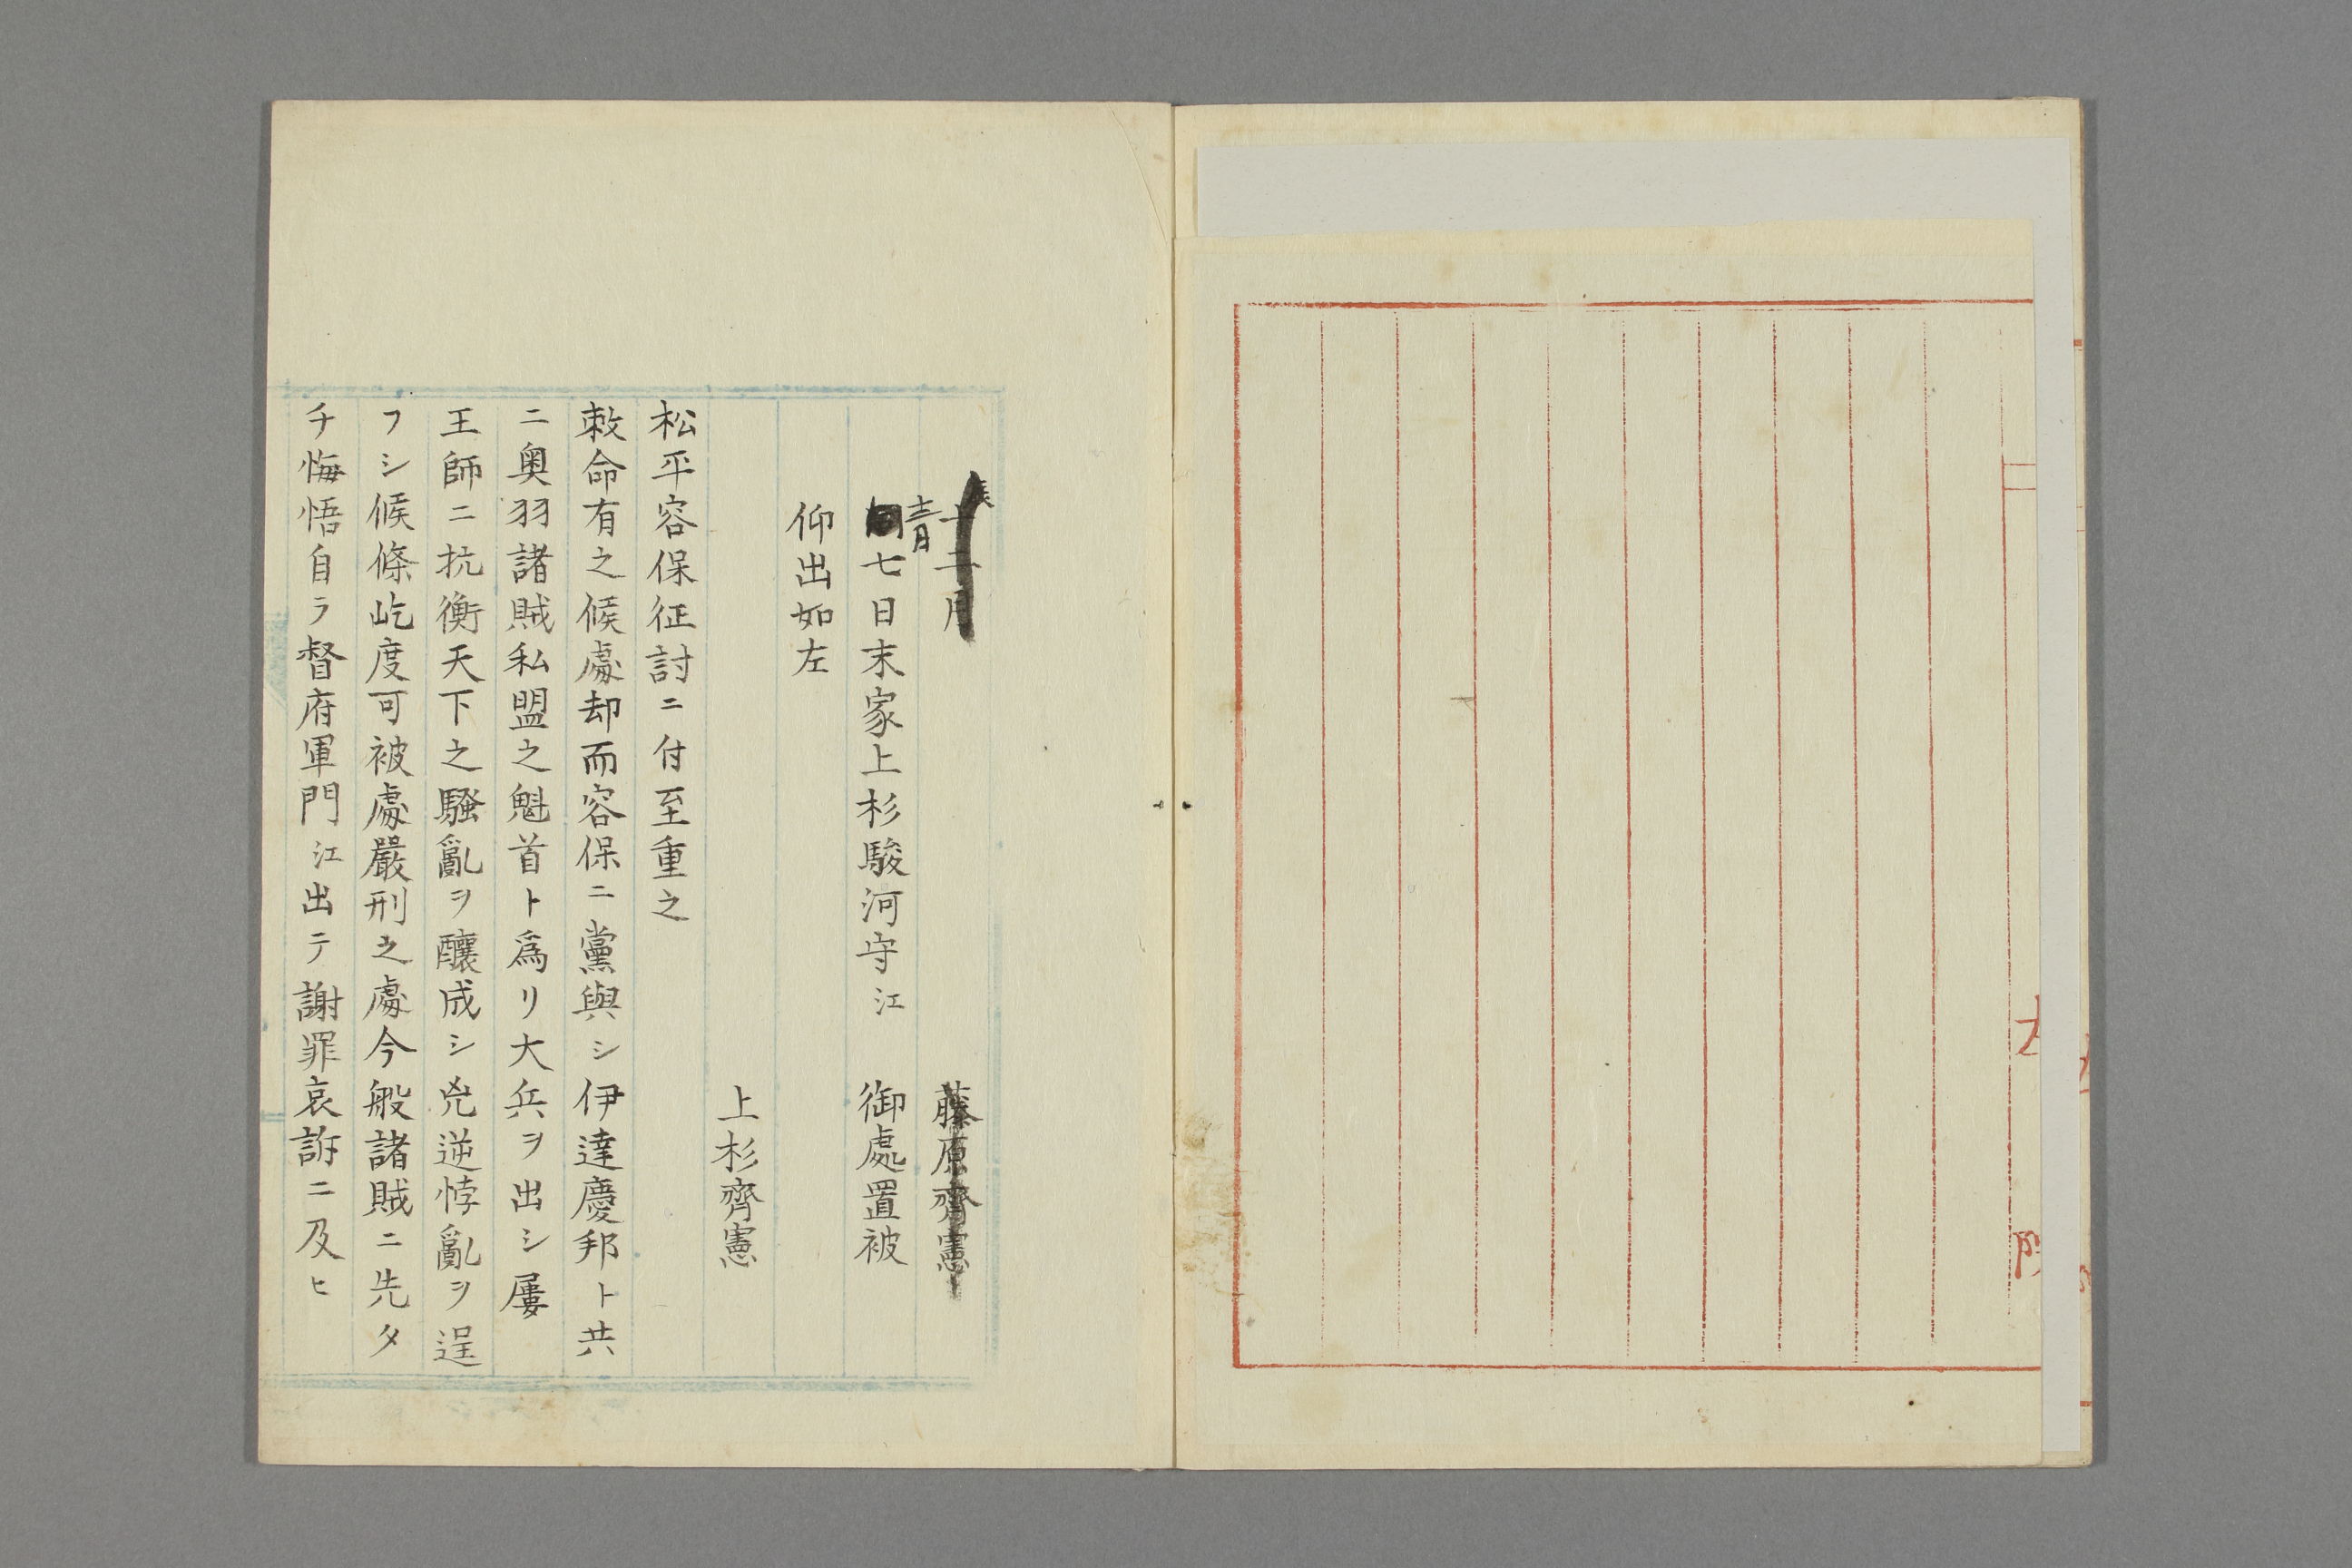 十二月　藤原齊憲
十二月
七日末家上杉駿河守江　御處置被
仰出如左
上杉齊憲
松平容保征討ニ付至重之
敕命有之候處却而容保ニ黨與シ伊達慶邦ト共
ニ奥羽諸賊私盟之魁首ト爲リ大兵ヲ出シ屢
王師ニ抗衡天下之騒亂ヲ釀成シ兇逆悖亂ヲ逞
フシ候條屹度可被處嚴刑之處今般諸賊ニ先タ
チ悔悟自ラ督府軍門江出テ謝罪哀訴ニ及ヒ